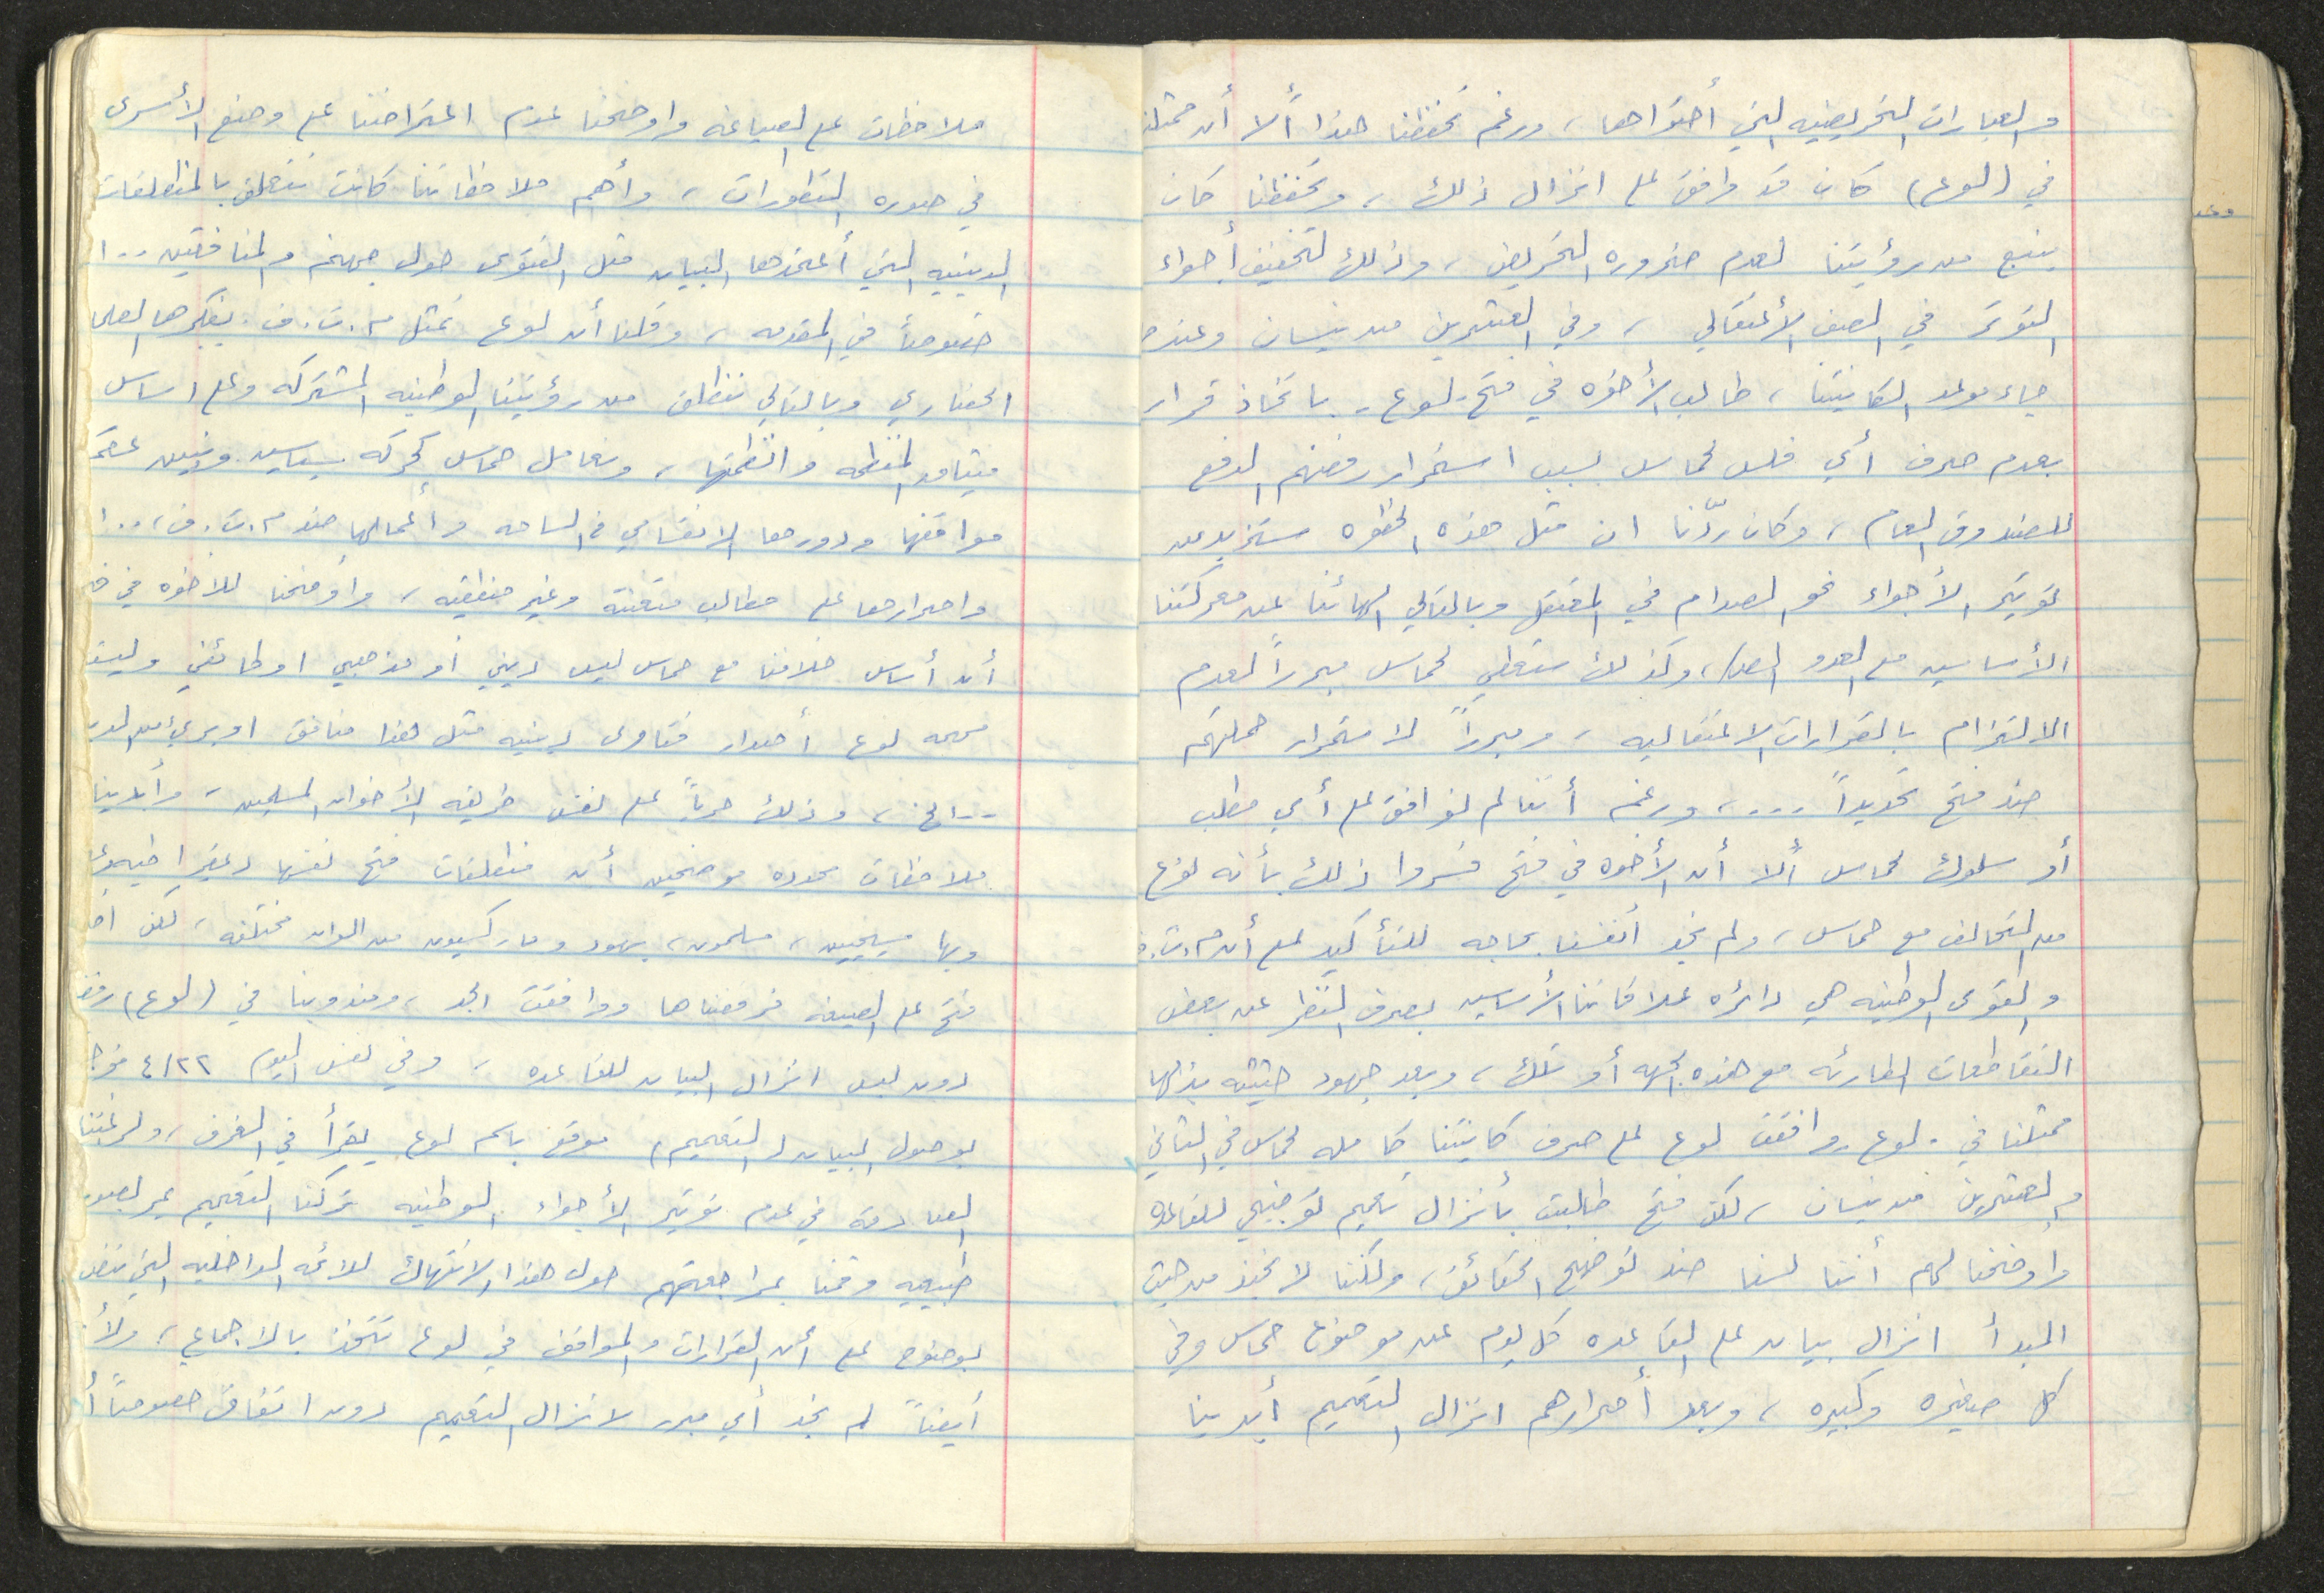 والعبارات التحريضيه التي أحتواها، ورغم تحفظنا هذا ألا أن ممثلنا
في (لوع) كان قد وافق على انزال ذلك، وتحفظنا كان
ينبع من رؤيتنا لعدم ضروره التحريض، وذلك لتخفيف أجواء
التوتر في الصف الأعتقالي، وفي العشرين من نيسان وعندما
جاء موعد الكانتينا، طالب الأخوه في فتح لوع باتخاذ قرار
بعدم صرف أي فلس لحماس بسبب استمرار رفضهم الدفع
للصندوق العام، وكان ردّنا ان مثل هذه الخطوه ستزيد من
توتير الأجواء نحو الصدام في المعتقل وبالتالي الهائنا عن معركتنا
الأساسيه مع العدو، وكذلك ستعطي لحماس مبرراً لعدم
الالتزام بالقرارات الاعتقاليه، ومبرراً لاستمرار حملتهم
ضد فتح تحديداً ...، ورغم أننا لم نوافق على أي مطلب
أو سلوك لحماس ألا أن الأخوه في فتح فسروا ذلك بأنه نوع
من التحالف مع حماس، ولم نجد أنفسنا بحاجه للتأكيد على أن م.ت.ف
والقوى الوطنيه هي دائره علاقاتنا الأساسيه بصرف النظر عن بعض
التقاطعات الطارئه مع هذه الجهه أو تلك، وبعد جهود حثيثه بذلها
ممثلنا في لوع وافقت لوع على صرف كانتينا كامله لحماس في الثاني
والعشرين من نيسان، لكن فتح طالبت بأنزال تعميم توضيحي للقاعده
وأوضحنا لهم أننا لسنا ضد توضيح الحقائق، ولكننا لا نحبذ من حيث
المبدأ انزال بيان على القاعده كل يوم عن موضوع حماس وفي
كل صغيره وكبيره، وبعد أصرارهم انزال التعميم أبدينا
ملاحظات على الصياغه واوضحنا عدم اعتراضنا على وضع الأسرى
في صوره التطورات، وأهم ملاحظاتنا كانت تتعلق بالمنطلقات
الدينيه التي أعتمدها البيان مثل الفتوى حول جهنم والمنافقين ..ا
خصوصاً في المقدمه، وقلنا أن لوع تمثل م.ت.ف. بفكرها العلماني
الحضاري وبالتالي ننطلق من رؤيتنا الوطنيه المشتركه وعلى اساس
ميثاق المنظمه وانظمتها، ونعامل حماس كحركه سياسيه
مواقفها ودورها الانقسامي في الساحه وأعمالها ضد م.ت.ف، ..ا
واصرارها على مطالب متعنته وغير منطقيه، وأوضحنا للاخوه في
أن أساس خلافنا مع حماس ليس ديني أو مذهبي او طائفي وليست
مهمه لوع أصدار فتاوى دينيه مثل هذا منافق او بريء من الدين
..الخ، وذلك جرياً على نفس طريقه الأخوان المسلمين، وأبدينا
ملاحظات محدده موضحين أن منطلقات فتح نفسها
وبها مسيحيين، مسلمون، يهود وماركسيون من الوان مختلفه، لكن
فتح على الصيغه فرفضناها ووافقت الجد، ومندوبنا في (لوع) رفض
دون لبس انزال البيان للقاعده، وفي نفس اليوم ٤/٢٢
بوصول البيان (التعميم) موقع باسم لوع يقرأ في الغرف، ولرغبتنا
الصادقه في عدم توتير الأجواء الوطنيه تركنا التعميم يمر بصوره
طبيعيه وقمنا بمراجعتهم حول هذا الانتهاك للائحه الداخليه التي تنص
بوضوح على أن القرارات والمواقف في لوع تتخذ بالاجماع، ولأننا
أيضاً لم نجد أي مبرر لانزال التعميم دون اتفاق خصوصاً